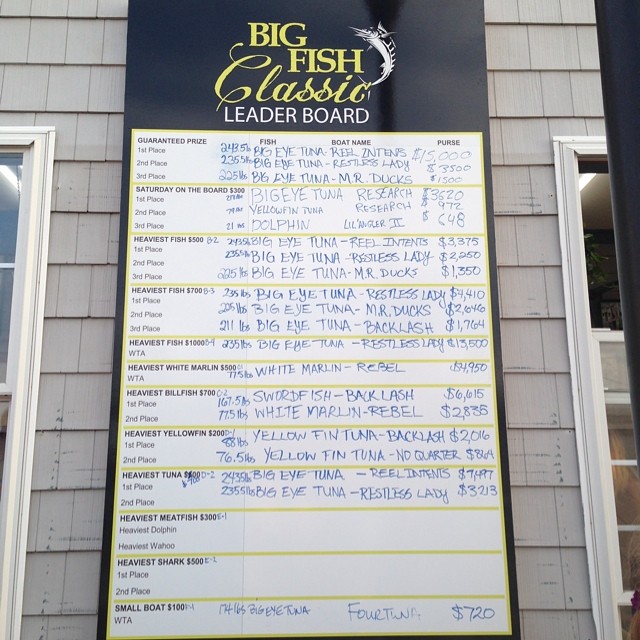 BIG
FISH
Classic
LEADER BOARD
GUARANTEED PRIZE FISH BOAT NAME PURSE
1st Place 243.5lb BIG EYE TUNA - REEL INTENTS $15,000
2nd Place 235.5lbs BIG EYE TUNA - RESTLESS LADY $3500
3rd Place 225lbs BIG EYE TUNA - M.R. DUCKS $1500
SATURDAY ON THE BOARD $300
1st Place BIGEYE TUNA RESEARCH $3620
2nd Place YELLOWFIN TUNA RESEARCH $972
3rd Place 21 lbs DOLPHIN LIL'ANGLER II $648
HEAVIEST FISH $500 B-2
1st Place 243.5lbs BIG EYE TUNA - REEL INTENTS $3,375
2nd Place 235.5lbs BIG EYE TUNA - RESTLESS LADY $2,250
3rd Place 225 lbs BIG EYE TUNA - M.R. DUCKS $1,350
HEAVIEST FISH $700 B-3
1st Place 235 lbs BIG EYE TUNA - RESTLESS LADY $4,410
2nd Place 225 lbs BIG EYE TUNA - M.R. DUCKS $2,646
3rd Place 211 lbs BIG EYE TUNA - BACKLASH $1,764
HEAVIEST FISH $1000 B-4 235lbs BIG EYE TUNA - RESTLESS LADY $13,500
WTA
HEAVIEST WHITE MARLIN $500 77.5lbs WHITE MARLIN - REBEL $4,950
WTA
HEAVIEST BILLFISH $700 C-2
1st Place 167.5lbs SWORDFISH - BACKLASH $6,615
2nd Place 77.5 lbs WHITE MARLIN - REBEL $2,835
HEAVIEST YELLOWFIN $200 D-1
1st Place 88lbs YELLOW FIN TUNA - BACKLASH $2,016
2nd Place 76.5lbs YELLOW FIN TUNA - NO QUARTER $864
HEAVIEST TUNA $400 D-2
1st Place 243.5lbs BIG EYE TUNA - REEL INTENTS $7,497
2nd Place 235.5lbs BIG EYE TUNA - RESTLESS LADY $3213
HEAVIEST MEATFISH $300 E-1
Heaviest Dolphin
Heaviest Wahoo
HEAVIEST SHARK $500 E-2
1st Place
2nd Place
SMALL BOAT $100 F-1 174 lbs BIG EYE TUNA FOURTUNA $720
WTA